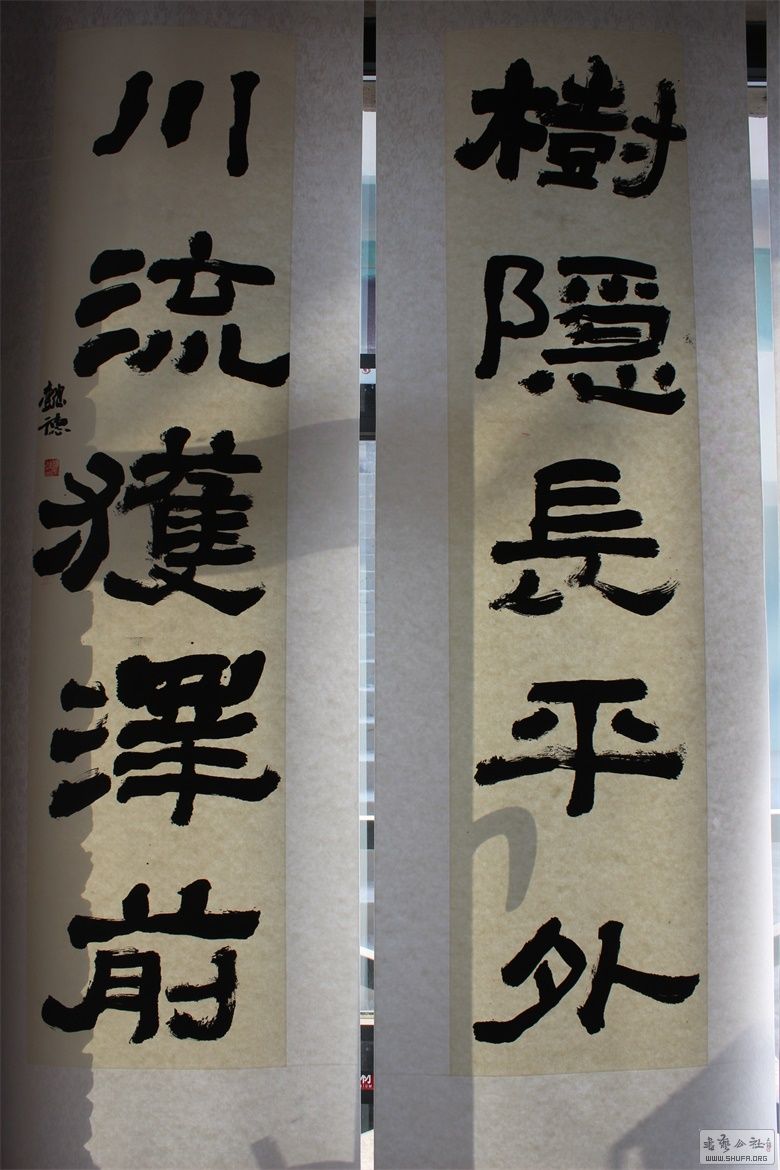 樹隱長平外
川流獲澤前
懿德
書藝公社
WWW.SHUFA.ORG